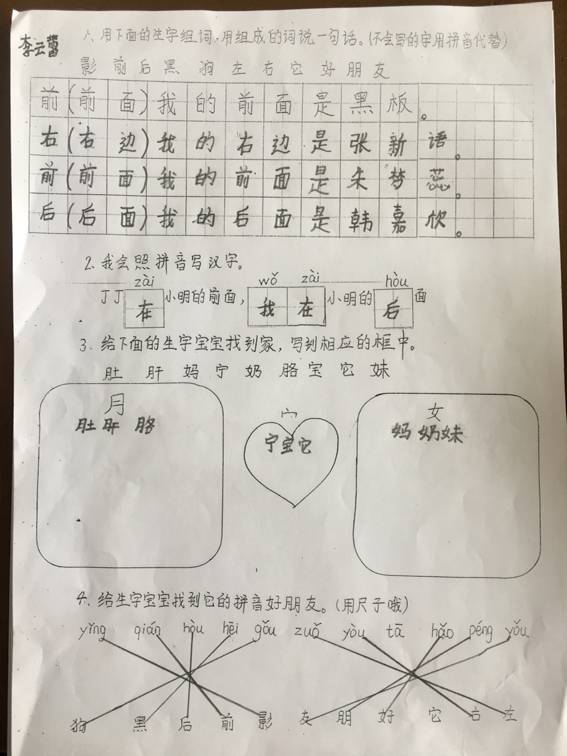 李云蕾
1、用下面的生字组词,用组成的词说一句话。(不会写的字用拼音代替)
影 前 后 黑 狗 左 右 它 好 朋 友
前(前面)我的前面是黑板。
右(右边)我的右边是张新语。
前(前面)我的前面是朱梦蕊。
后(后面)我的后面是韩嘉欣。
2、我会照拼音写汉字。
zài wǒ zài hòu
丁丁在小明的前面,我在小明的后面
3、给下面的生字宝宝找到家,写到相应的框中。
肚 肝 妈 宁 奶 胳 宝 它 妹
月 宀 女
肚肝 胳 宁宝它 妈奶妹
4、给生字宝宝找到它的拼音好朋友。(用尺子哦)
yǐng qián hòu hēi gǒu zuǒ yòu tā hǎo péng yǒu
狗 黑 后 前 影 友 朋 好 它 右 左